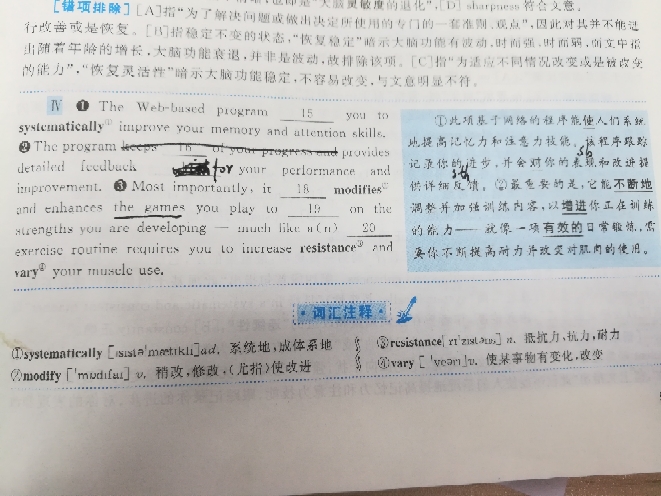 [错项排除] [A]指“为了解决问题或做出决定所使用的专门的一套准则、观点”,因此对其并不能进
行改善或是恢复。[B]指稳定不变的状态,“恢复稳定”暗示大脑功能有波动,时而强,时而弱,而文中指
出随着年龄的增长,大脑功能衰退,并非是波动,故排除该项。[C]指“为适应不同情况改变或是被改变
的能力”,“恢复灵活性”暗示大脑功能稳定,不容易改变,与文意明显不符。
Ⅳ ❶ The Web-based program 15 you to
systematically① improve your memory and attention skills.
❷ The program keeps 16 of your progress and provides
detailed feedback for your performance and
improvement. ❸ Most importantly, it 18 modifies②
and enhances the games you play to 19 on the
strengths you are developing — much like a(n) 20
exercise routine requires you to increase resistance③ and
vary④ your muscle use.
①此项基于网络的程序能使人们系统
地提高记忆力和注意力技能。②该程序跟踪
记录你的进步,并会对你的表现和改进提
供详细反馈。③最重要的是,它能不断地
调整并加强训练内容,以增进你正在训练
的能力——就像一项有效的日常锻炼,需
要你不断提高耐力并改变对肌肉的使用。
sb
sth
·词汇注释·
①systematically [ˌsɪstəˈmætɪkli] ad. 系统地,成体系地
②modify [ˈmɒdɪfaɪ] v. 稍改,修改,(尤指)使改进
③resistance [rɪˈzɪstəns] n. 抵抗力,抗力,耐力
④vary [ˈveəri] v. 使某事物有变化,改变